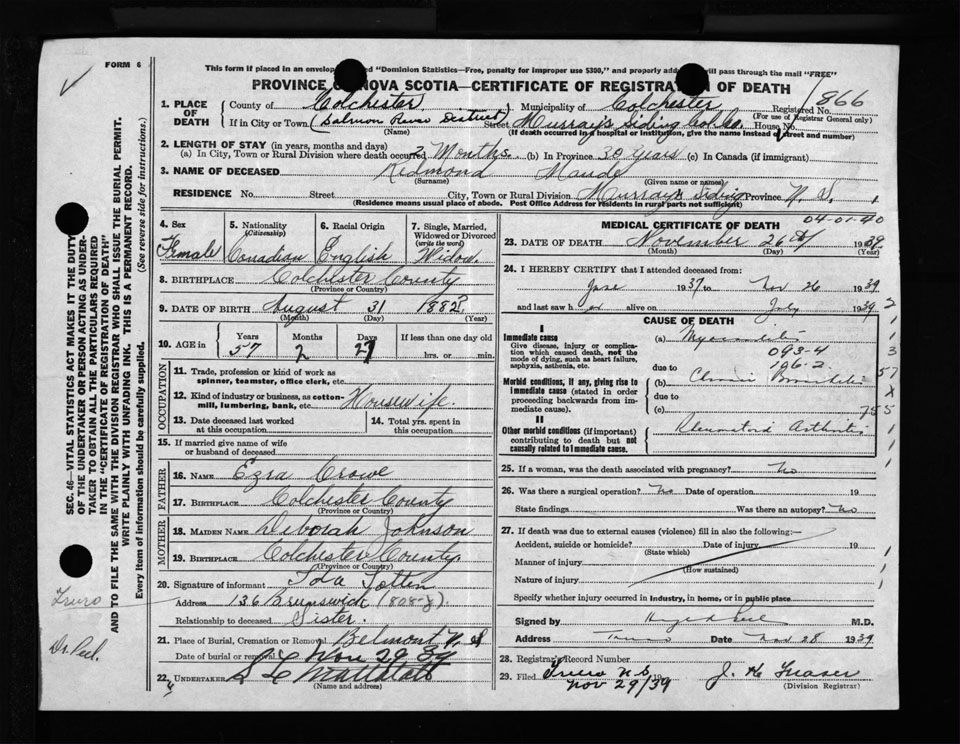 FORM 6
This form if placed in an envelop d "Dominion Statistics—Free, penalty for improper use $300," and properly add ill pass through the mail "FREE"
PROVINCE O NOVA SCOTIA—CERTIFICATE OF REGISTRAT N OF DEATH
1. PLACE OF DEATH
County of Colchester Municipality of Colchester Registered No. 866
(For use of Registrar General only)
If in City or Town (Salmon River District) Street Murray's Siding Col. Co. House No.
(Name) (If death occurred in a hospital or institution, give the name instead of street and number)
2. LENGTH OF STAY (in years, months and days)
(a) In City, Town or Rural Division where death occurred 2 Months (b) In Province 30 Years (c) In Canada (if immigrant)
3. NAME OF DECEASED Redmond Maude
(Surname) (Given name or names)
RESIDENCE No. Street City, Town or Rural Division Murrays Siding Province N. S.
(Residence means usual place of abode. Post Office Address for Residents in rural parts not sufficient)
4. Sex Female
5. Nationality (Citizenship) Canadian
6. Racial Origin English
7. Single, Married, Widowed or Divorced (write the word) Widow.
8. BIRTHPLACE Colchester County
(Province or County)
9. DATE OF BIRTH August 31 1882
(Month) (Day) (Year)
10. AGE in Years 57 Months 2 Days 27 If less than one day old
hrs. or min.
OCCUPATION
11. Trade, profession or kind of work as spinner, teamster, office clerk, etc.
12. Kind of industry or business, as cotton-mill, lumbering, bank, etc. Housewife.
13. Date deceased last worked at this occupation
14. Total yrs. spent in this occupation.
15. If married give name of wife or husband of deceased
FATHER
16. NAME Ezra Crowe
17. BIRTHPLACE Colchester County
(Province or County)
MOTHER
18. MAIDEN NAME Deborah Johnson
19. BIRTHPLACE Colchester County.
(Province or County)
20. Signature of informant Ida Totten
Address 136 Brunswick (808-J).
Relationship to deceased Sister.
21. Place of Burial, Cremation or Removal Belmont N. S
Date of burial or removal Nov 29 39
22. UNDERTAKER
(Name and address)
MEDICAL CERTIFICATE OF DEATH
04-01-90
23. DATE OF DEATH November 26th 1939
(Month) (Day) (Year)
24. I HEREBY CERTIFY that I attended deceased from:
June 1937 to Nov 26 1939
and last saw h er alive on July 1939
CAUSE OF DEATH
I
Immediate cause
Give disease, injury or complication which caused death, not the mode of dying, such as heart failure, asphyxia, asthenia, etc.
Morbid conditions, if any, giving rise to immediate cause (stated in order proceeding backwards from immediate cause).
II
Other morbid conditions (if important) contributing to death but not causally related to immediate cause.
(a) Myocarditis
093-4
106-2
due to
(b) Chronic Bronchitis
due to
(c)
Rheumatoid Arthritis
25. If a woman, was the death associated with pregnancy? No
26. Was there a surgical operation? No Date of operation 19
State findings Was there an autopsy? No
27. If death was due to external causes (violence) fill in also the following:
Accident, suicide or homicide? Date of injury 19
(State which)
Manner of injury
(How sustained)
Nature of injury
Specify whether injury occurred in Industry, in home, or in public place
Signed by M.D.
Address Truro Date Nov 28 1939
28. Registrar's Record Number
29. Filed Truro N.S. 19
Nov 29/39 J. H Fraser
(Division Registrar)
SEC. 46—VITAL STATISTICS ACT MAKES IT THE DUTY
OF THE UNDERTAKER OR PERSON ACTING AS UNDER-
TAKER TO OBTAIN ALL THE PARTICULARS REQUIRED
IN THE "CERTIFICATE OF REGISTRATION OF DEATH"
AND TO FILE THE SAME WITH THE DIVISION REGISTRAR WHO SHALL ISSUE THE BURIAL PERMIT.
WRITE PLAINLY WITH UNFADING INK. THIS IS A PERMANENT RECORD.
Every item of information should be carefully supplied. (See reverse side for instructions.)
Truro
Dr. Peel.